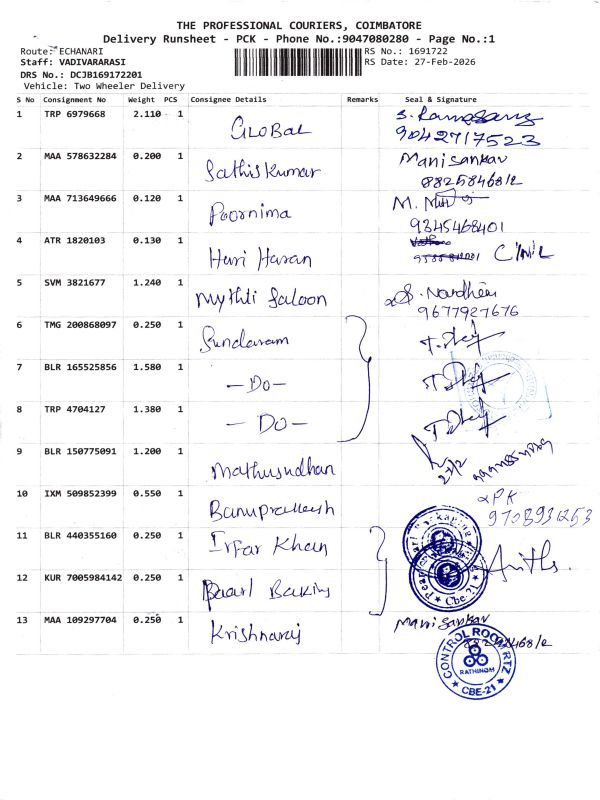 THE PROFESSIONAL COURIERS, COIMBATORE
Delivery Runsheet - PCK - Phone No.:9047080280 - Page No.:1
Route: ECHANARI RS No.: 1691722
Staff: VADIVARARASI RS Date: 27-Feb-2026
DRS No.: DCJB169172201
Vehicle: Two Wheeler Delivery
S No Consignment No Weight PCS Consignee Details Remarks Seal & Signature
1 TRP 6979668 2.110 1 GLOBAL
9042717523
2 MAA 578632284 0.200 1 Sathiskumar Manisankar
3 MAA 713649666 0.120 1 Poornima M.
9345468401
4 ATR 1820103 0.130 1 Hari Haran
5 SVM 3821677 1.240 1 Mythti Saloon
9677927676
6 TMG 200868097 0.250 1 Sundaram
7 BLR 165525856 1.580 1 -Do-
8 TRP 4704127 1.380 1 -Do-
9 BLR 150775091 1.200 1 Mathusudhan 27/2
10 IXM 509852399 0.550 1
11 BLR 440355160 0.250 1 Irfar Khan
12 KUR 7005984142 0.250 1 Cbe-21
13 MAA 109297704 0.250 1 Krishnaraj Manisankar
CONTROL ROOM
RATHINOM
CBE-21